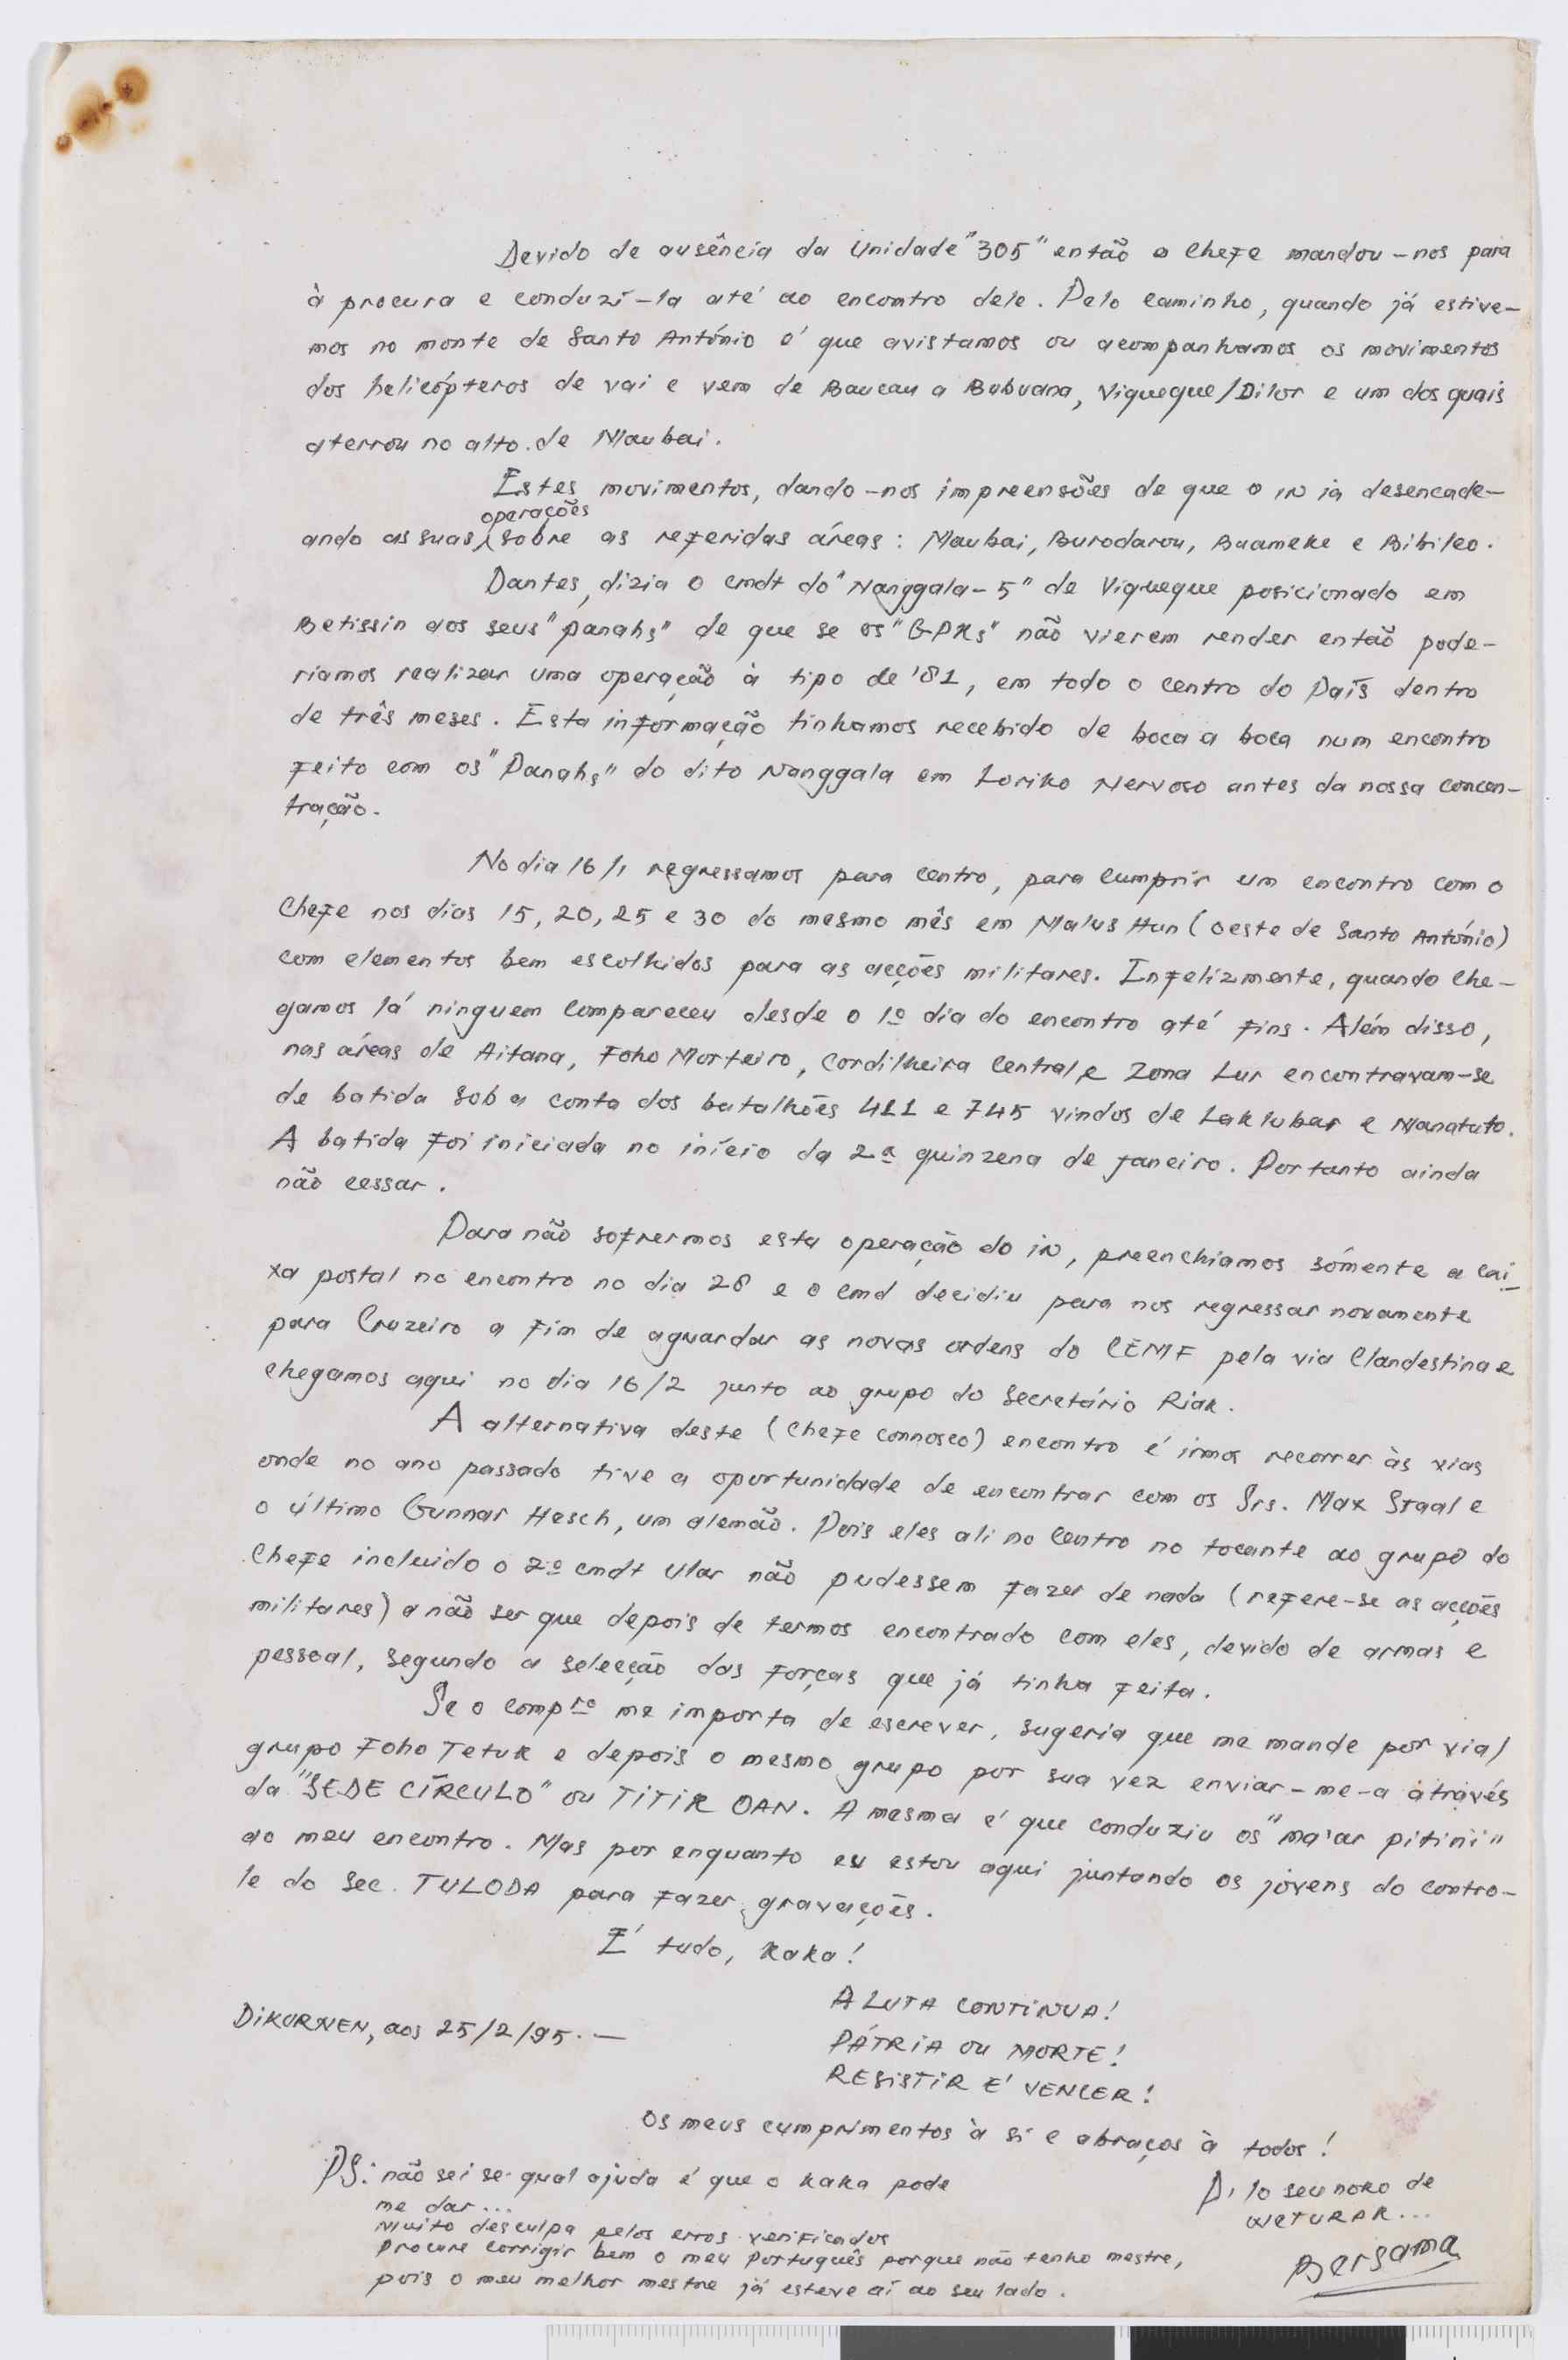 Devido de ausência da Unidade "305" então o Chefe mandou-nos para
à procura e conduzí-la até ao encontro dele. Pelo caminho, quando já estive-
mos no monte de Santo António é que avistamos ou acompanhamos os movimentos
dos helicópteros de vai e vem de Baucau a Bubuana, Viqueque/Dilor e um dos quais
aterrou no alto de Maubai.
Estes movimentos, dando-nos impreensões de que o in ia desencade-
operações
ando as suas sobre as referidas áreas: Maubai, Burodarou, Buameke e Bibileo.
Dantes, dizia o cmdt do "Nanggala-5" de Viqueque posicionado em
Betissin aos seus "panahs" de que se os "GPKs" não vierem render então pode-
ríamos realizar uma operação à tipo de '81, em todo o centro do País dentro
de três meses. Esta informação tinhamos recebido de boca a boca num encontro
feito com os "Panahs" do dito Nanggala em Loriko Nervoso antes da nossa concen-
tração.
No dia 16/1 regressamos para centro, para cumprir um encontro com o
Chefe nos dias 15, 20, 25 e 30 do mesmo mês em Malus Hun (oeste de Santo António)
com elementos bem escolhidos para as acções militares. Infelizmente, quando che-
gamos lá ninguem compareceu desde o 1º dia do encontro até fins. Além disso,
nas áreas de Aitana, Foho Morteiro, Cordilheira Central e Zona Lur encontravam-se
de batida sob a conta dos batalhões 411 e 745 vindos de Laklubar e Manatuto.
A batida foi iniciada no início da 2ª quinzena de Janeiro. Portanto ainda
não cessar.
Para não sofrermos esta operação do in, preenchiamos sómente a cai-
xa postal no encontro no dia 28 e o cmd decidiu para nos regressar novamente
para Cruzeiro a fim de aguardar as novas ordens do CEMF pela via Clandestina e
chegamos aqui no dia 16/2 junto ao grupo do Secretário Riak.
A alternativa deste (Chefe connosco) encontro é irmos recorrer às vias
onde no ano passado tive a oportunidade de encontrar com os Srs. Max Staal e
o último Gunnar Hesch, um alemão. Pois eles ali no Centro no tocante ao grupo do
Chefe incluido o 2º cmdt Ular não pudessem fazer de nada (refere-se as acções
militares) a não ser que depois de termos encontrado com eles, devido de armas e
pessoal, segundo a selecção das forças que já tinha feita.
Se o compro me importa de escrever, sugeria que me mande por via
grupo Foho Tetuk e depois o mesmo grupo por sua vez enviar-me-a através
da "SEDE CÍRCULO" ou TITIR OAN. A mesma é que conduziu os "ma'ar pitinii"
ao meu encontro. Mas por enquanto eu estou aqui juntando os jovens do contro-
le do Sec. TULODA para fazer gravações.
É tudo, kaka!
A LUTA CONTINUA!
DIKURNEN, aos 25/2/95.—
PÁTRIA OU MORTE!
RESISTIR É VENCER!
Os meus cumprimentos à si e abraços à todos!
PS: não sei se qual ajuda é que o kaka pode
me dar...
Muito desculpa pelos erros verificados
Procure corrigir bem o meu Português porque não tenho mestre,
pois o meu melhor mestre já esteve aí ao seu lado.
lo seu noko de
WETURAR...
Bersama